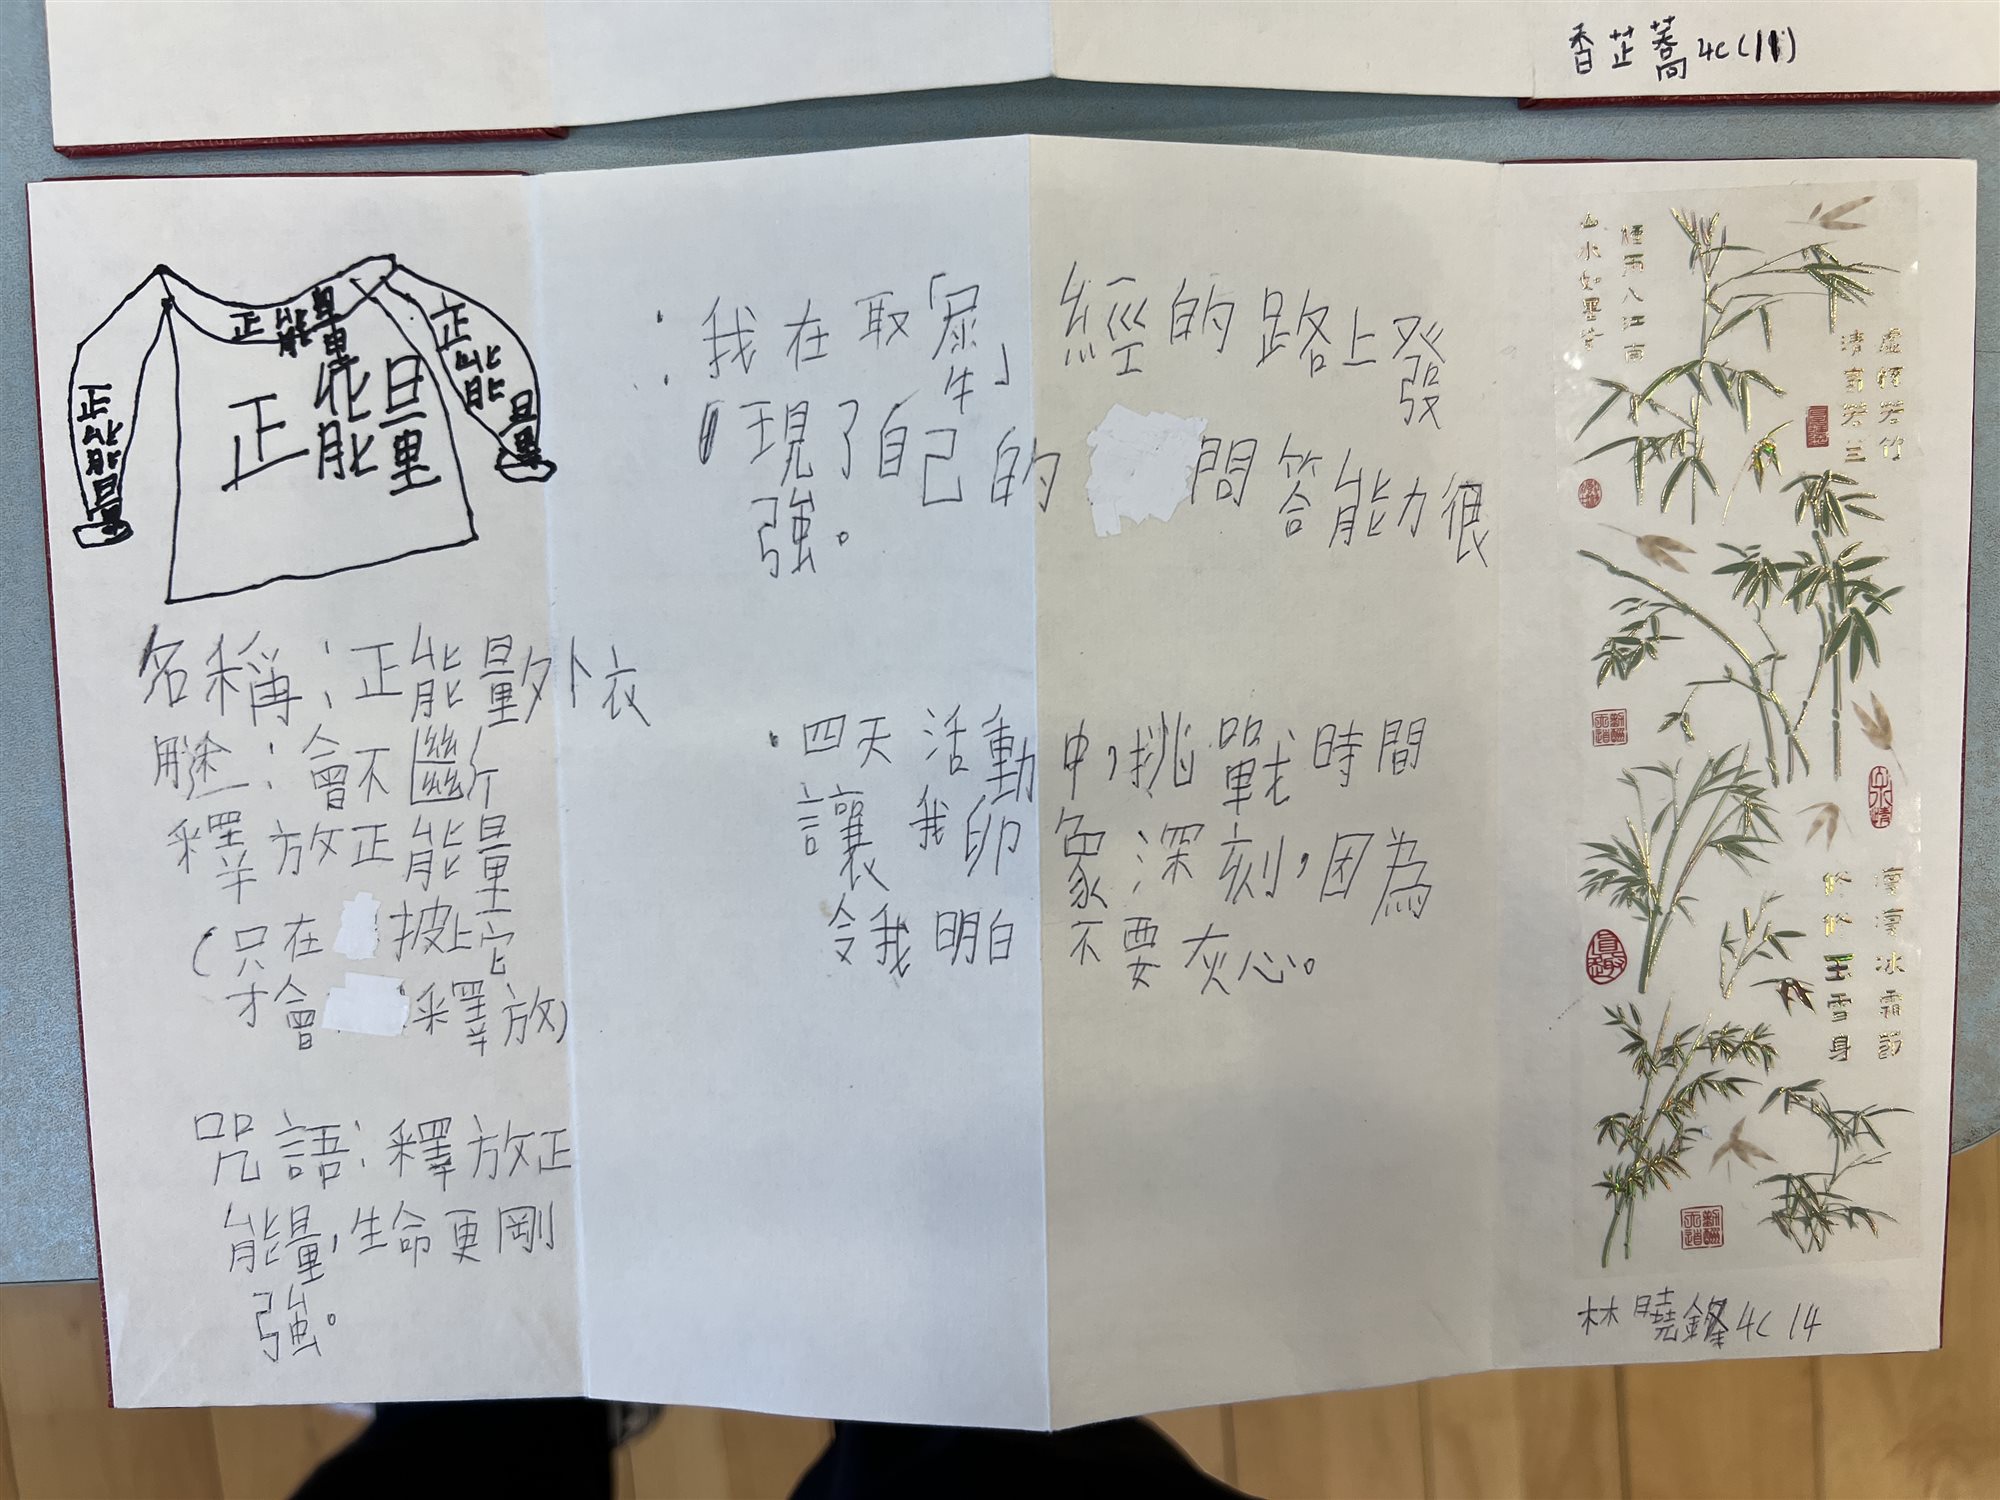 香芷蕎4C(11)
正能量
正能量
正能量
正能量
名稱：正能量外衣
用途：會不斷
釋放正能量
(只在披上它
才會釋放)
咒語：釋放正
能量，生命更剛
強。
我在取「犀」經的路上發
現了自己的問答能力很
強。
四天活動中，挑戰時間
讓我印象深刻，因為
令我明白不要灰心。
煙雨入江南
山水如墨染
虛懷若竹
清言若蘭
凜凜冰霜節
修修玉雪身
林曉鋒4C 14